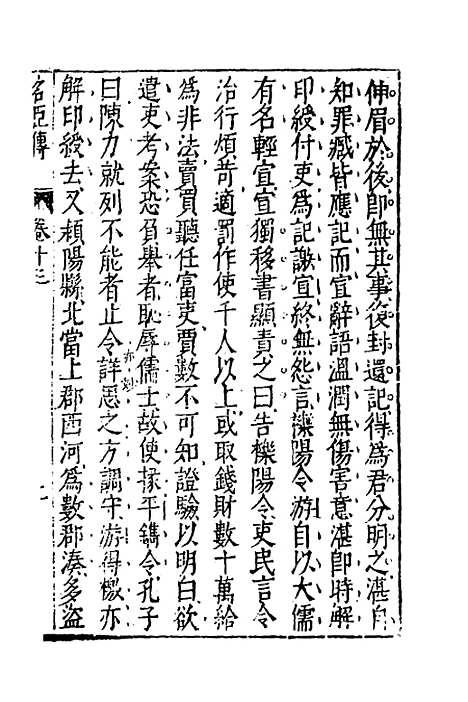 伸眉於後即無其事復封還記得為君分明之湛自
知罪臧皆應記而宜辭語溫潤無傷害意湛即時解
印綬付吏為記謝宜終無怨言櫟陽令游自以大儒
有名輕宜宜獨移書顯責之曰告櫟陽令吏民言令
治行煩苛適罰作使千人以上或取錢財數十萬給
為非法賣買聽任富吏賈數不可知證驗以明白欲
遣吏考案恐負舉者恥辱儒士故使掾平鐫令孔子
曰陳力就列不能者止令詳思之方調守游得檄亦
解印綬去又頻陽縣北當上郡西河為數郡湊多盜
名臣傳 卷十三